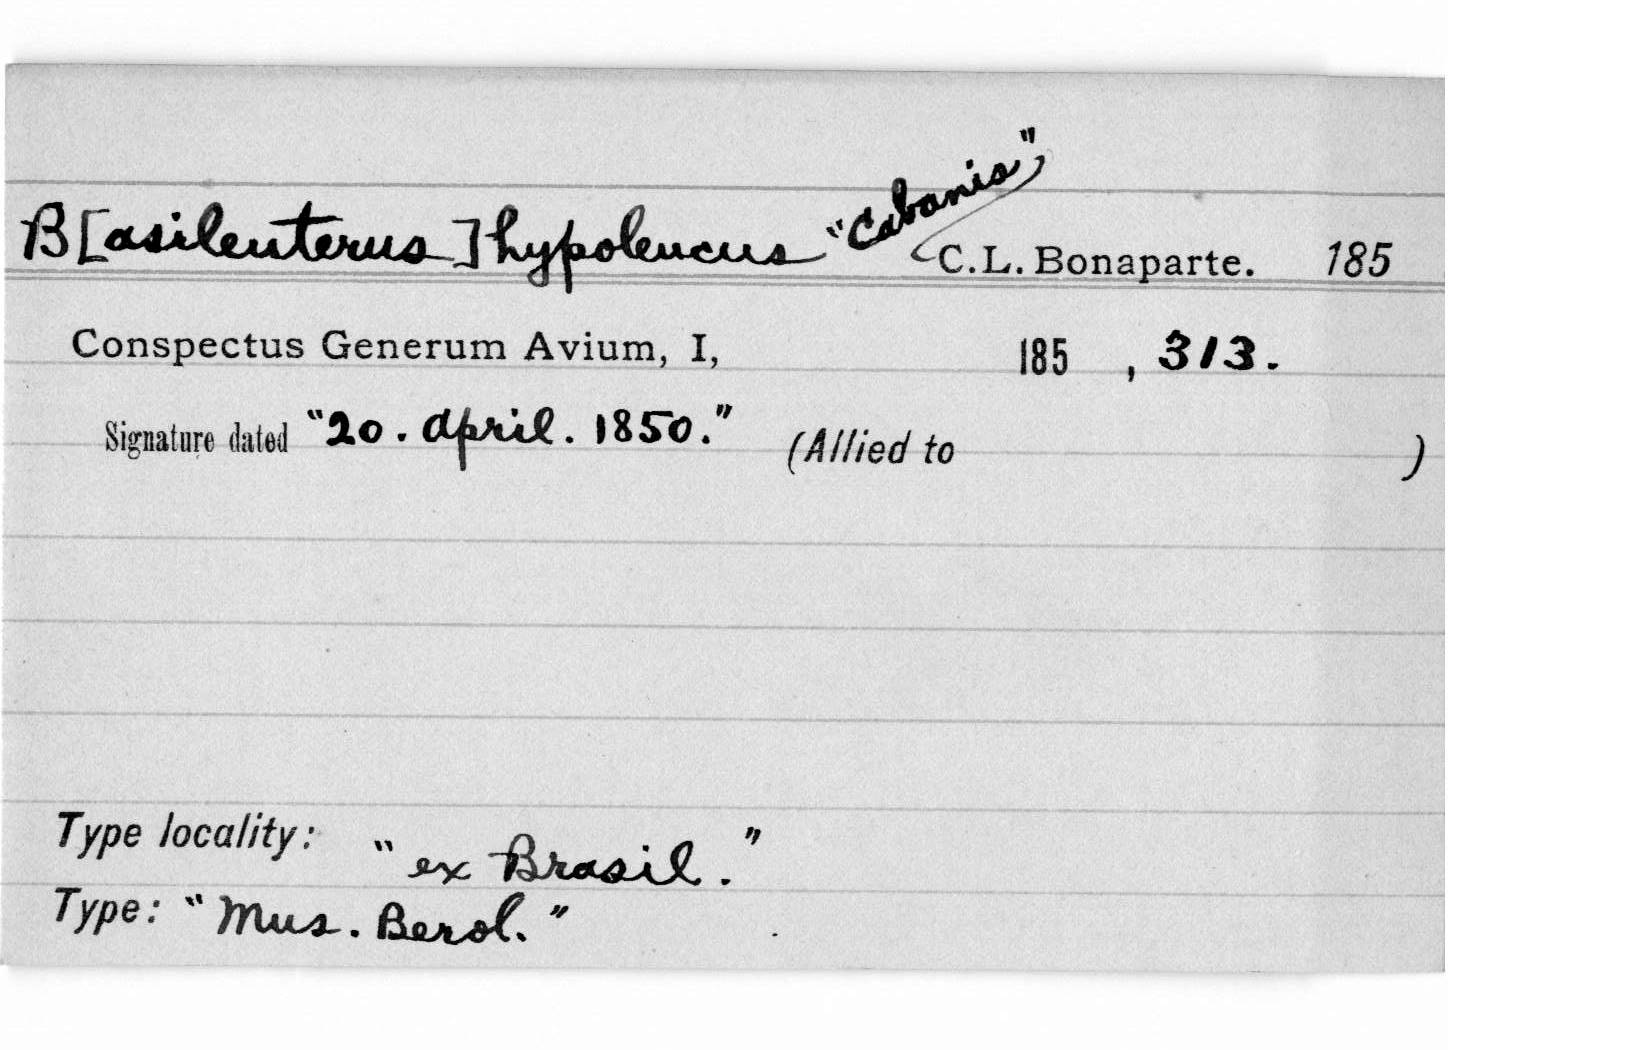 B[asileuterus] hypoleucus "Cabanis" C.L. Bonaparte. 185
Conspectus Generum Avium, I, 185 , 313.
Signature dated "20. April. 1850." (Allied to )
Type locality: "ex Brasil."
Type: "Mus. Berol."